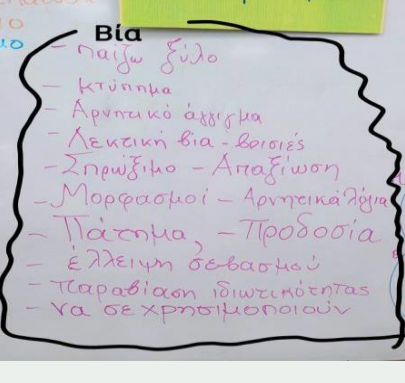 Βία
- παίζω ξύλο
- κτύπημα
- Αρνητικό άγγιγμα
- Λεκτική βία - βρισιές
- Σπρώξιμο - Απαξίωση
- Μορφασμοί - Αρνητικά λόγια
- Πάτημα, - Προδοσία
- έλλειψη σεβασμού
- παραβίαση ιδιωτικότητας
- να σε χρησιμοποιούν